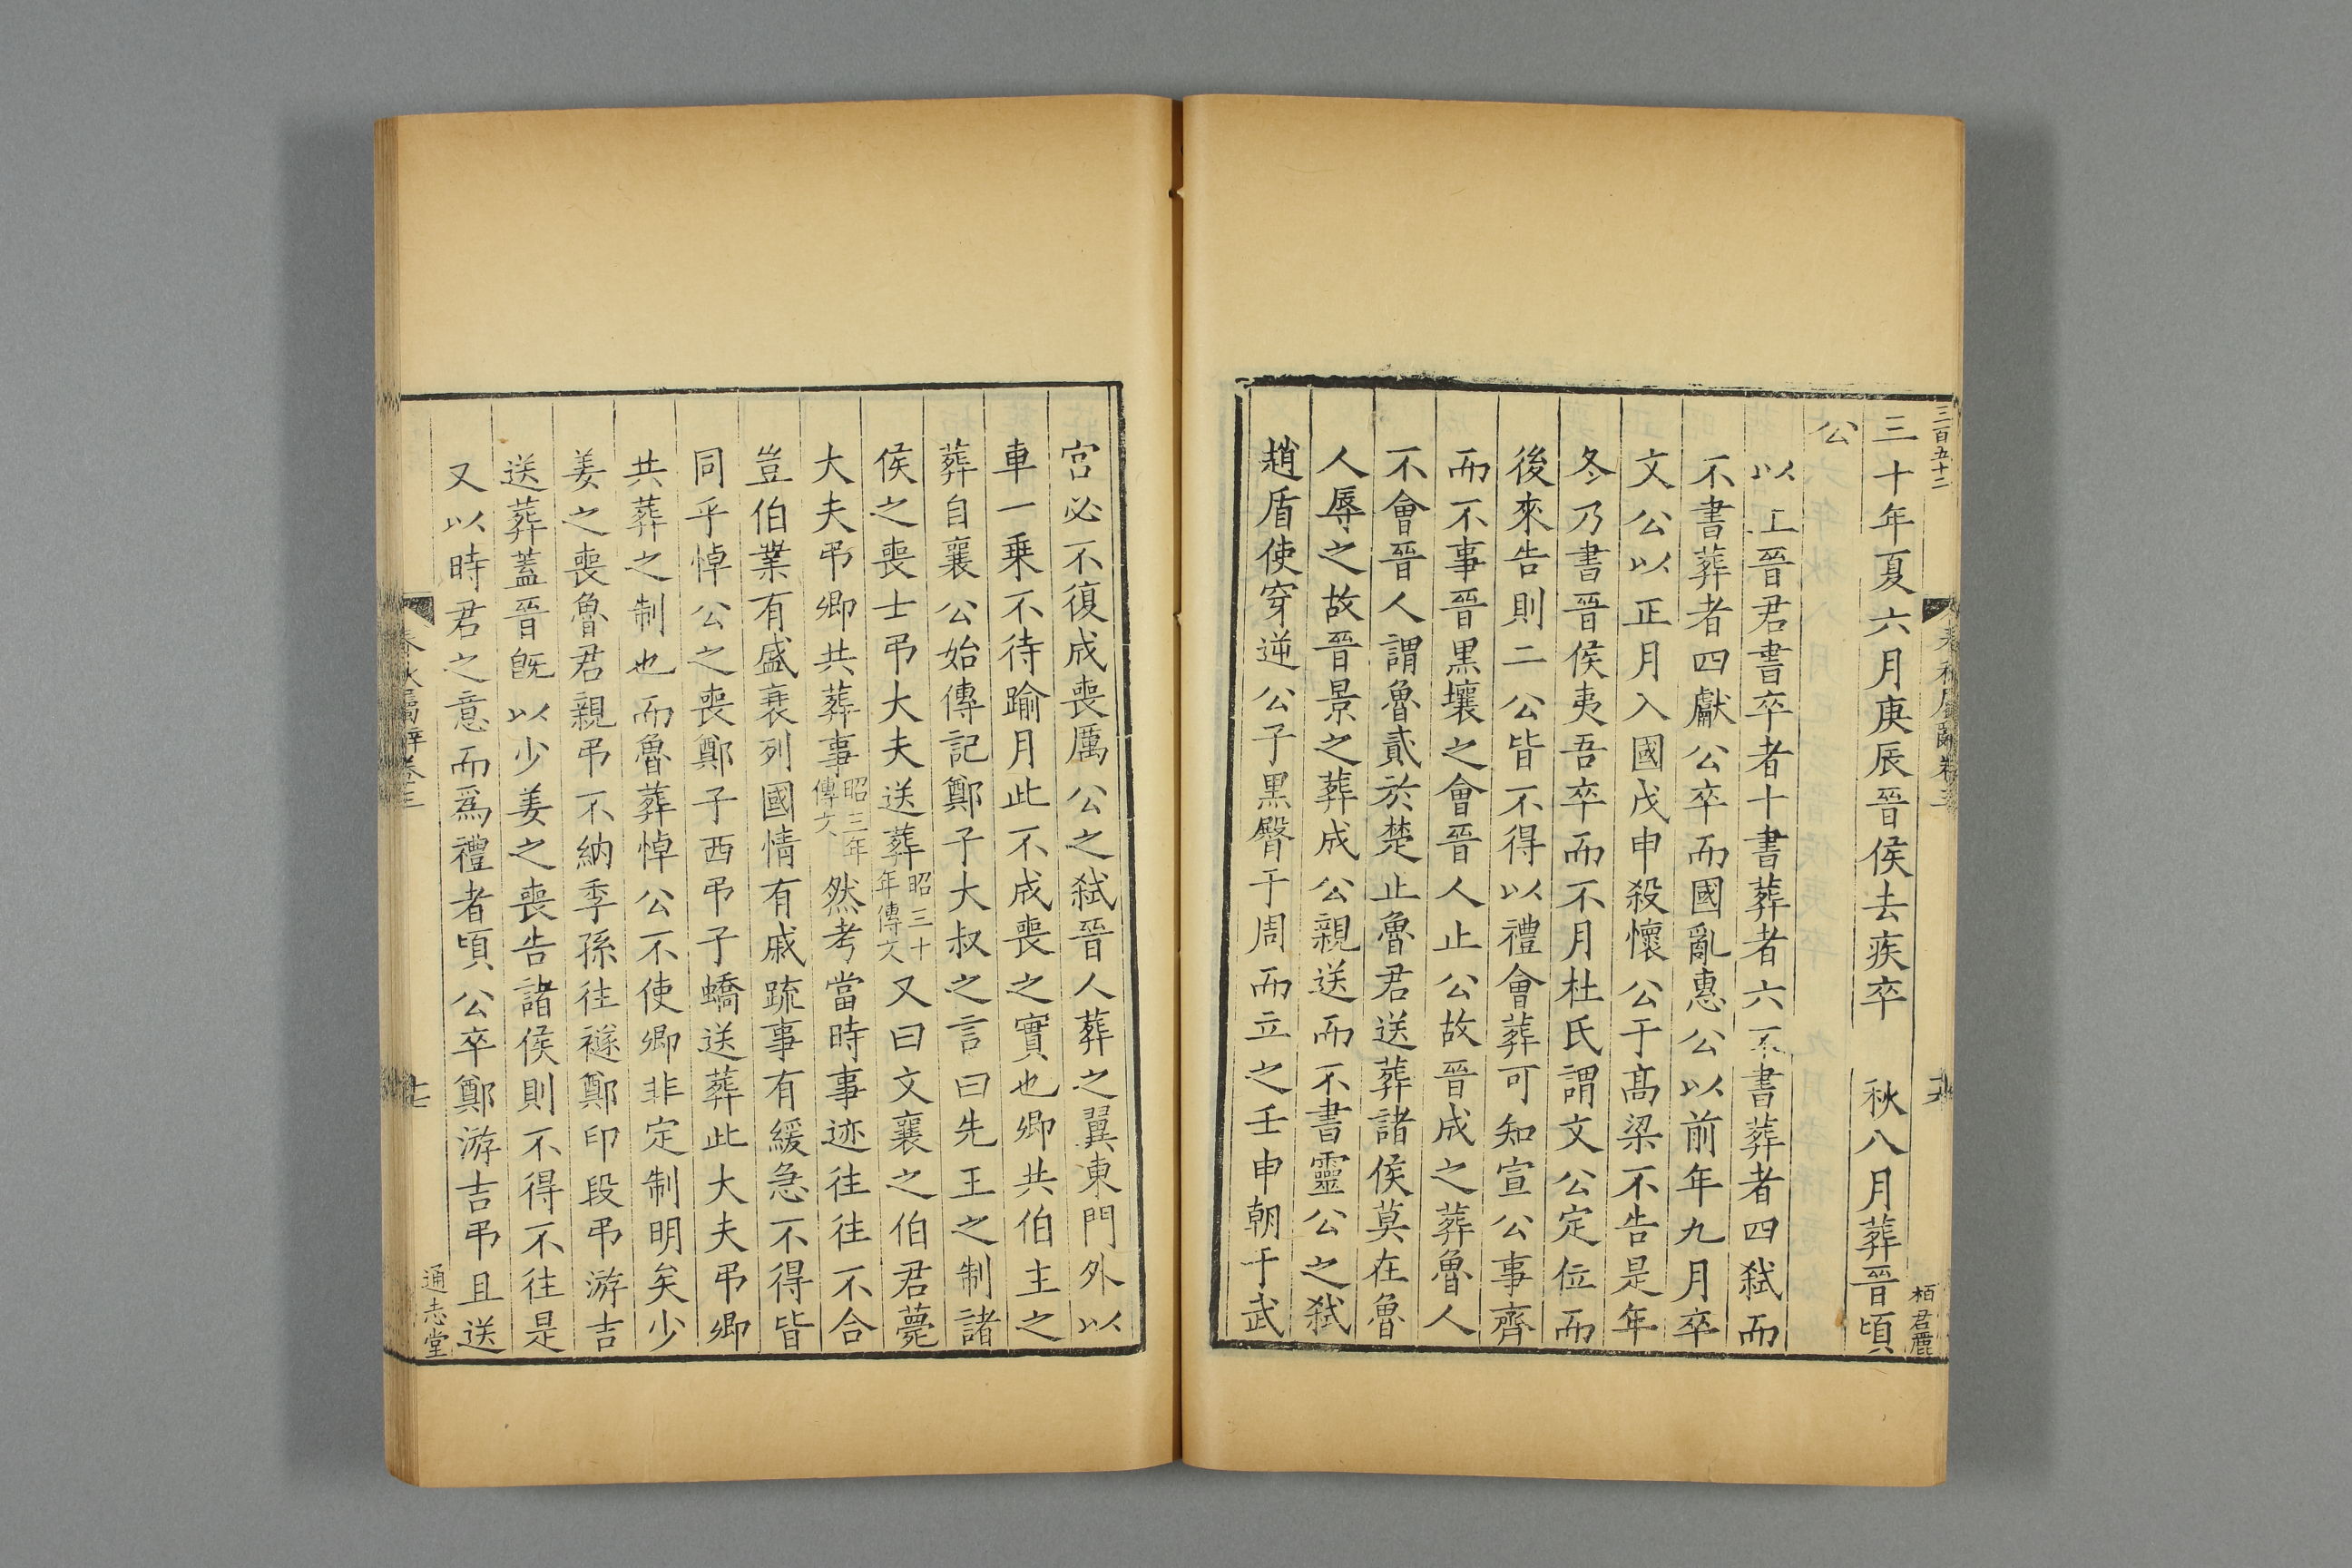 三百五十二
春秋屬辭卷三
栢君鹿
三十年夏六月庚辰晉侯去疾卒　秋八月葬晉頃
公
以上晉君書卒者十書葬者六不書葬者四弑而
不書葬者四獻公卒而國亂惠公以前年九月卒
文公以正月入國戊申殺懷公于高梁不告是年
冬乃書晉侯夷吾卒而不月杜氏謂文公定位而
後來告則二公皆不得以禮會葬可知宣公事齊
而不事晉黒壤之會晉人止公故晉成之葬魯人
不會晉人謂魯貳於楚止魯君送葬諸侯莫在魯
人辱之故晉景之葬成公親送而不書靈公之弑
趙盾使穿逆公子黒臀于周而立之壬申朝于武
宮必不復成喪厲公之弑晉人葬之翼東門外以
車一乗不待踰月此不成喪之實也卿共伯主之
葬自襄公始傳記鄭子大叔之言曰先王之制諸
侯之喪士弔大夫送葬昭三十年傳文又曰文襄之伯君薨
大夫弔卿共葬事昭三年傳文然考當時事迹往往不合
豈伯業有盛衰列國情有戚疏事有緩急不得皆
同乎悼公之喪鄭子西弔子蟜送葬此大夫弔卿
共葬之制也而魯葬悼公不使卿非定制明矣少
姜之喪魯君親弔不納季孫往襚鄭印段弔游吉
送葬蓋晉旣以少姜之喪告諸侯則不得不往是
又以時君之意而爲禮者頃公卒鄭游吉弔且送
春秋屬辭卷三
七
通志堂